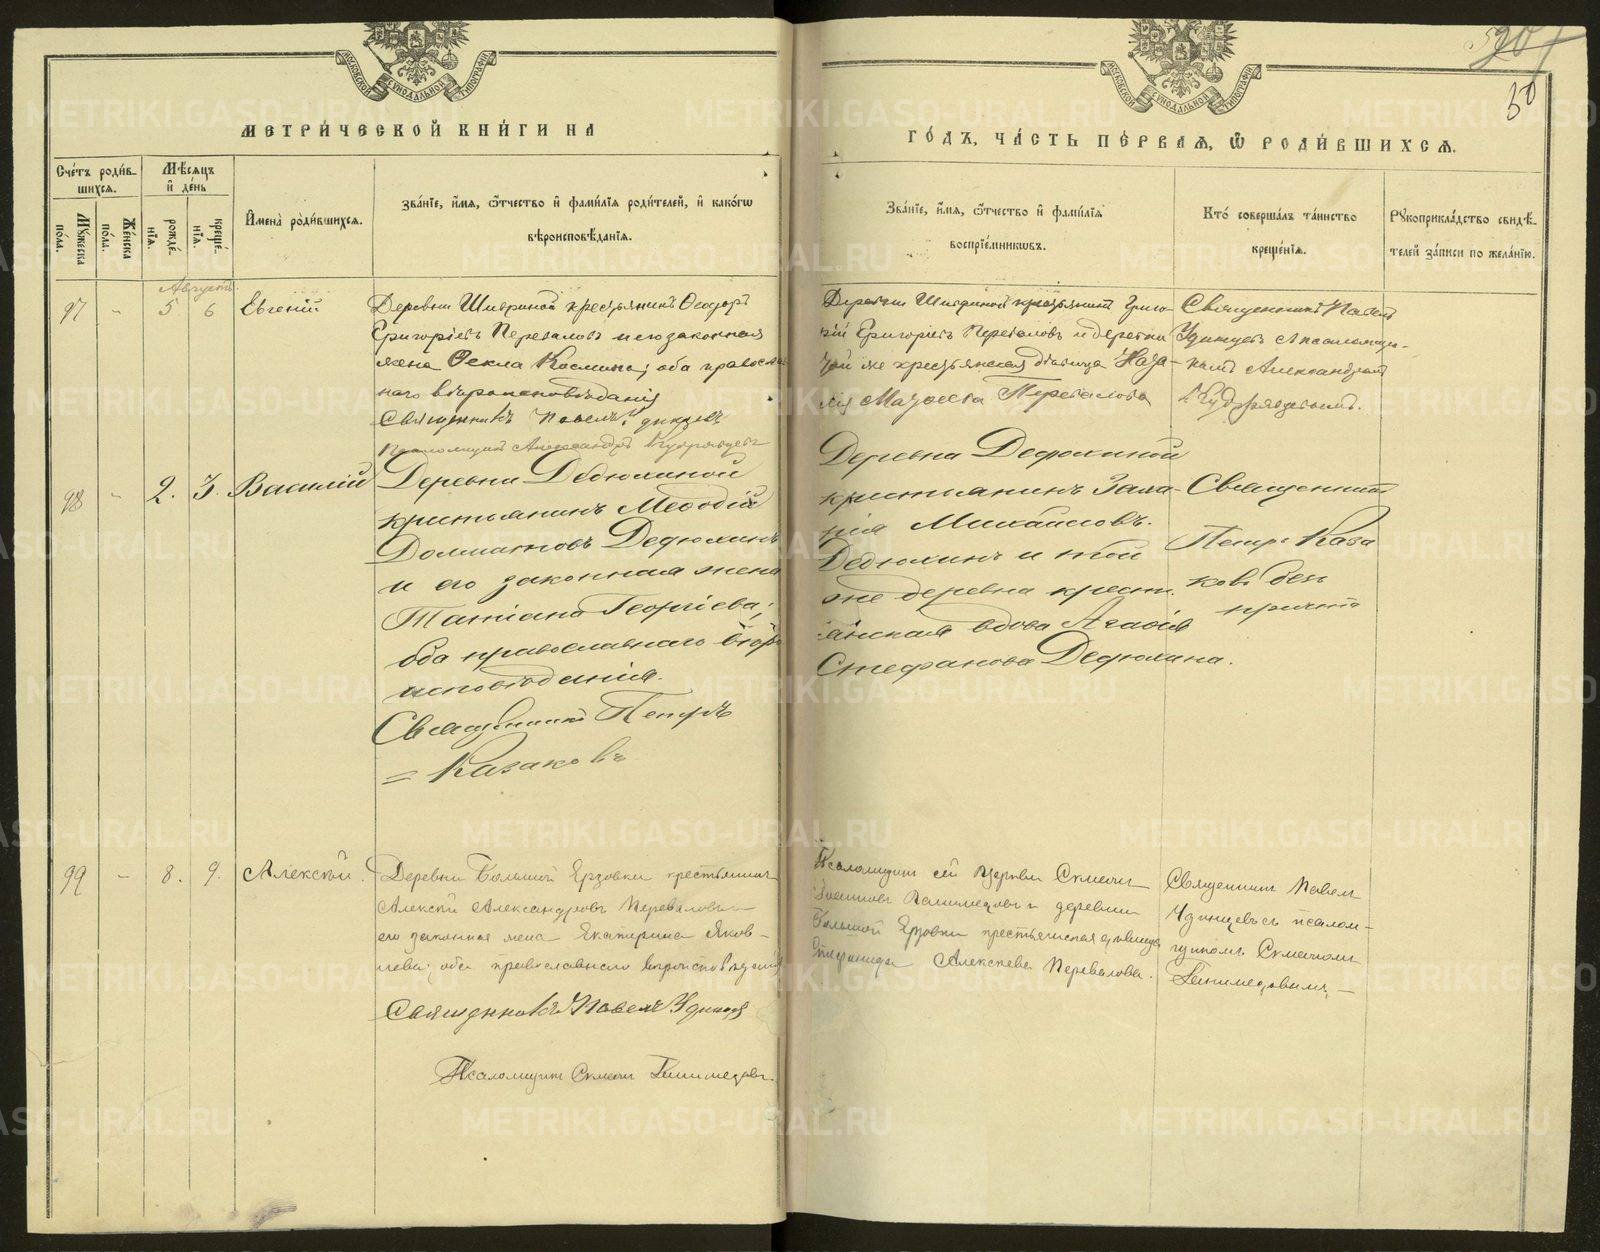 МОСКОВСКОЙ СѴНОДАЛЬНОЙ ТИПОГРАФІИ
МОСКОВСКОЙ СѴНОДАЛЬНОЙ ТИПОГРАФІИ
50
МЕТРИ́ЧЕСКОЙ КНИ́ГИ НА
ГО́ДЪ, ЧА́СТЬ ПЕ́РВАѦ, Ѿ РОДИ́ВШИХСѦ.
Сче́тъ роди́в-
шихся.
Мѣ́сяцъ
и҆ де́нь
Му́жеска
по́ла.
Же́нска
по́ла.
рожде́-
нія.
креще́-
нія.
И҆мена̀ роди́вшихся.
Зва́нїе, и҆́мя, ѻ҆́тчество и҆ фами́лїя роди́телей, и҆ како́гѡ
вѣроисповѣ́данїя.
Зва́нїе, и҆́мя, ѻ҆́тчество и҆ фами́лїя
воспрїе́мникѡвъ.
Кто̀ соверша́лъ та́инство
креще́нїя.
Рꙋкоприкла́дство свидѣ́-
телей за́писи по жела́нїю.
Августъ
97 - 5 6 Евгеній
Деревни Шивриной крестьянинъ Ѳеодоръ
Григоріевъ Переваловъ и его законная
жена Ѳекла Косьмина; оба православ-
наго вѣроисповѣданія
Священникъ Павелъ Удинцевъ
Псаломщикъ Александръ Кудрявцевъ
Деревни Шивриной крестьянинъ Григо-
рій Григоріевъ Переваловъ и деревни
той же крестьянская дѣвица
Переваловa
Священникъ Павелъ
Удинцевъ с псаломщи-
комъ Александромъ
Кудрявцевымъ.
98 - 2. 3. Василій
Деревни Дедюхиной
крестьянинъ Меѳодій
Долматовъ Дедюхинъ
и его законная жена
Татіана Георгіева;
оба православнаго вѣро
исповѣданія.
Священникъ Петръ
Казаковъ
Деревни Дедюхиной
крестьянинъ Заха-
рія Михаиловъ
Дедюхинъ и той
же деревни крест
янская вдова Агафія
Стефанова Дедюхина.
Священникъ
Петръ Каза
ковъ безъ
причта
99 - 8. 9. Алексѣй.
Деревни Большой Ерзовки крестьянинъ
Алексѣй Александровъ Переваловъ
его законная жена Екатерина Яков-
лева; оба православнаго вѣроисповѣданія
Священникъ Павелъ Удинцевъ
Псаломщикъ
Псаломщикъ сей церкви
деревни
Большой Ерзовки крестьянская дѣвица
Стефанида Алексѣева Перевалова.
Священникъ Павелъ
Удинцевъ съ псалом-
щикомъ
METRIKI.GASO-URAL.RU